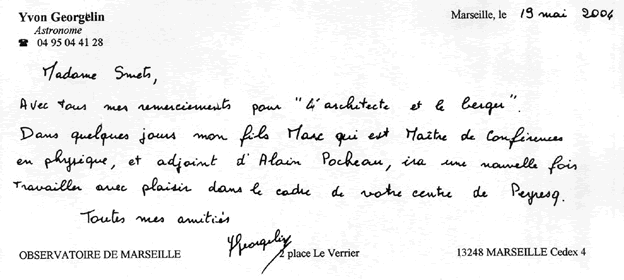 Yvon Georgelin
Astronome
☎ 04 95 04 41 28
Marseille, le 19 mai 2004
Madame Smets,
Avec tous mes remerciements pour "L'architecte et le berger".
Dans quelques jours mon fils Marc qui est Maître de Conférences
en physique, et adjoint d'Alain Pocheau, ira une nouvelle fois
travailler avec plaisir dans le cadre de votre centre de Peyresq.
Toutes mes amitiés
YGeorgelin
OBSERVATOIRE DE MARSEILLE
2 place Le Verrier
13248 MARSEILLE Cedex 4